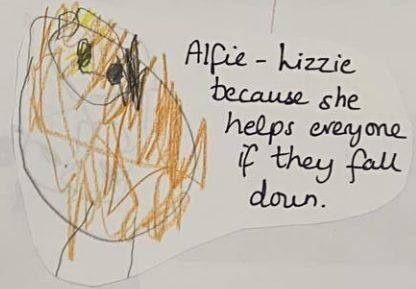 Alfie - Lizzie
because she
helps everyone
if they fall
down.